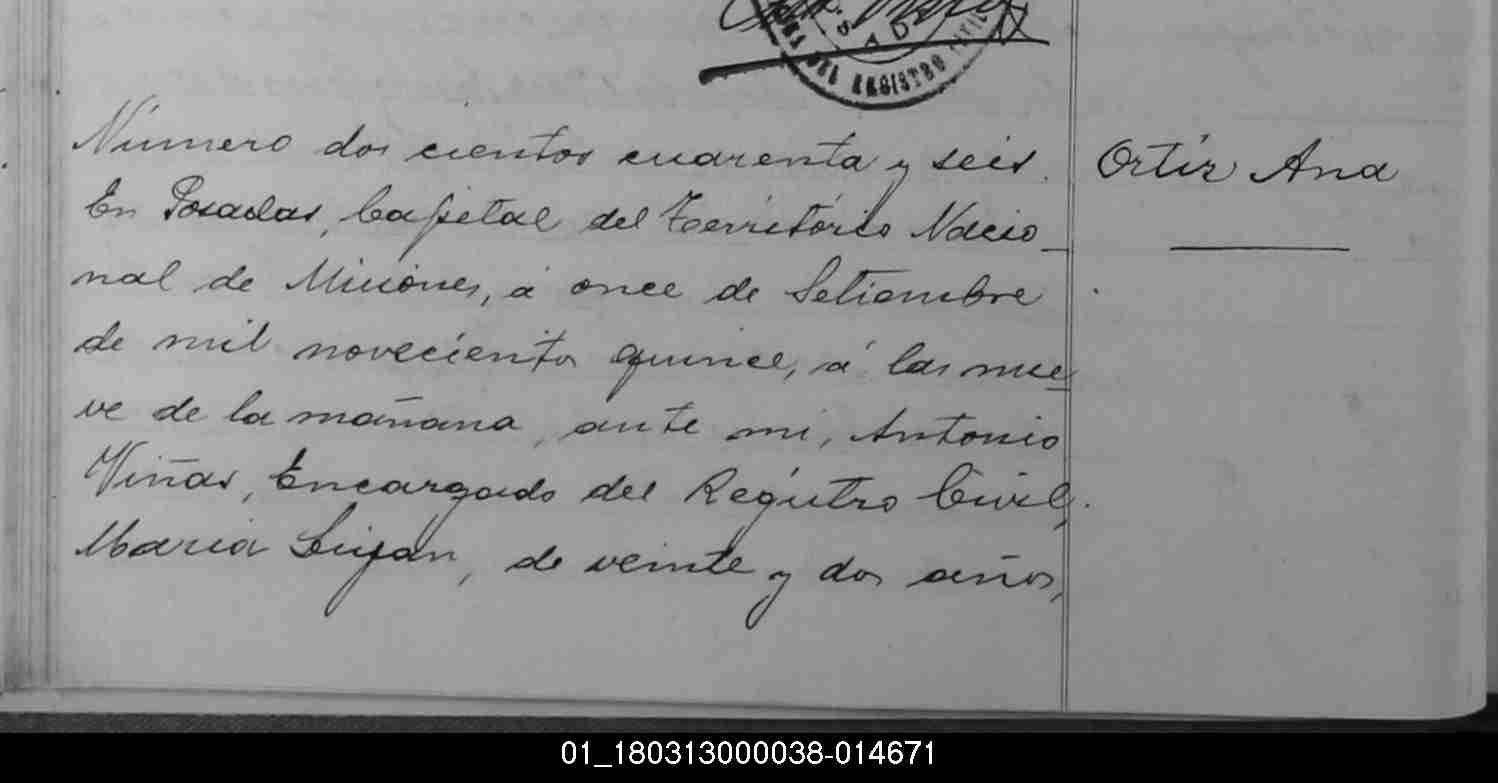 DEL REGISTRO CIVIL
Número dos cientos cuarenta y seis. Ortiz Ana
En Posadas, Capital del Território Nacio_
nal de Misiones, á once de Setiembre
de mil novecientos quince, á las nue_
ve de la mañana, ante mi, Antonio
Viñas, Encargado del Registro Civil,
Maria Lujan, de veinte y dos años,
01_180313000038-014671